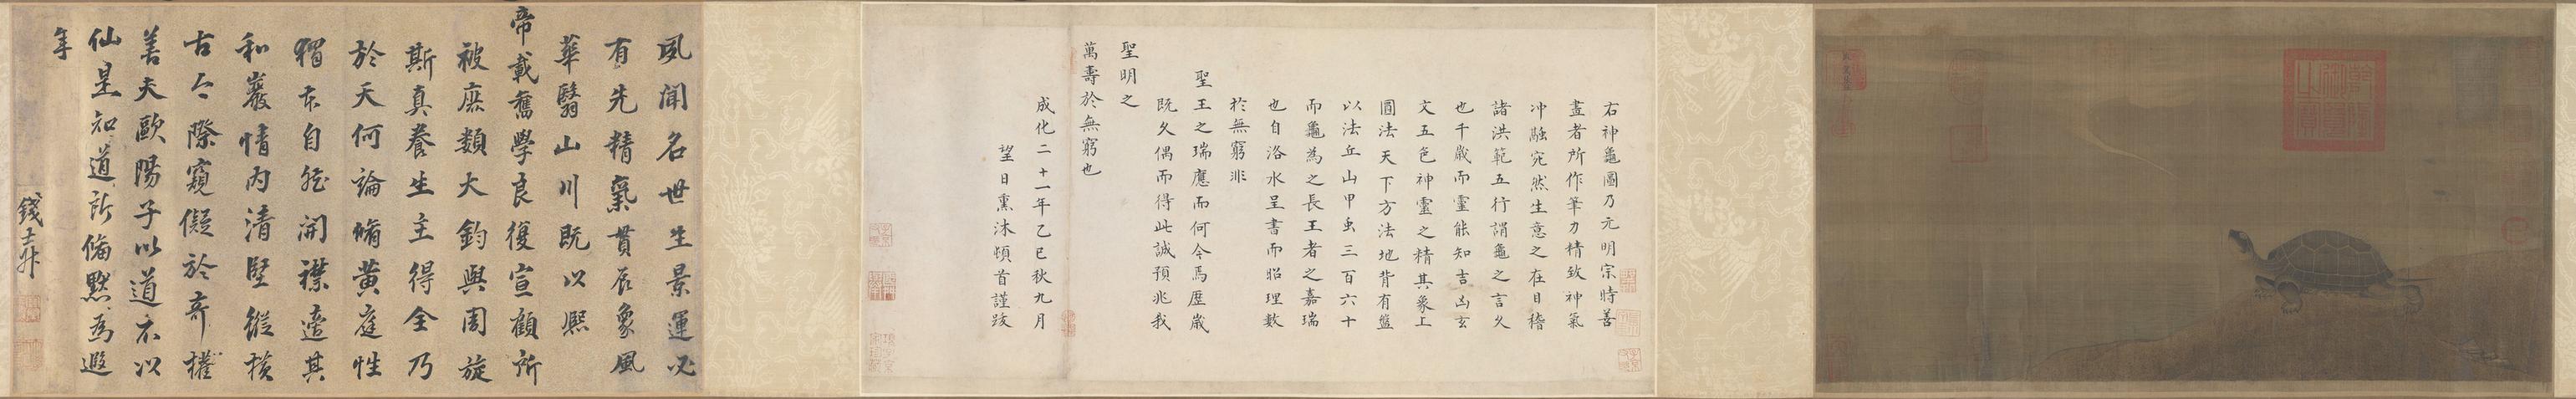 右神龜圖乃元明宗時善
畫者所作筆力精致神氣
冲融宛然生意之在目稽
諸洪範五行謂龜之言久
也千歲而靈能知吉凶玄
文五色神靈之精其象上
圓法天下方法地背有盤
以法丘山甲虫三百六十
而龜為之長王者之嘉瑞
也自洛水呈書而昭理數
於無窮非
聖王之瑞應而何今焉歷歲
既久偶而得此誠預兆我
聖明之
萬壽於無窮也
成化二十一年乙巳秋九月
望日熏沐頓首謹跋
夙聞名世生景運必
有先精氣貫辰象風
華翳山川既以熙
帝載舊學良復宣顧所
被庶類大鈞與周旋
斯真養生主得全乃
於天何論脩黃庭性
猶本自能開襟遣其
和嚴情内清堅縱橫
古今際窺儗於奇權
善夫歐陽子以道不以
仙是知道所脩默為遐
年
錢士升